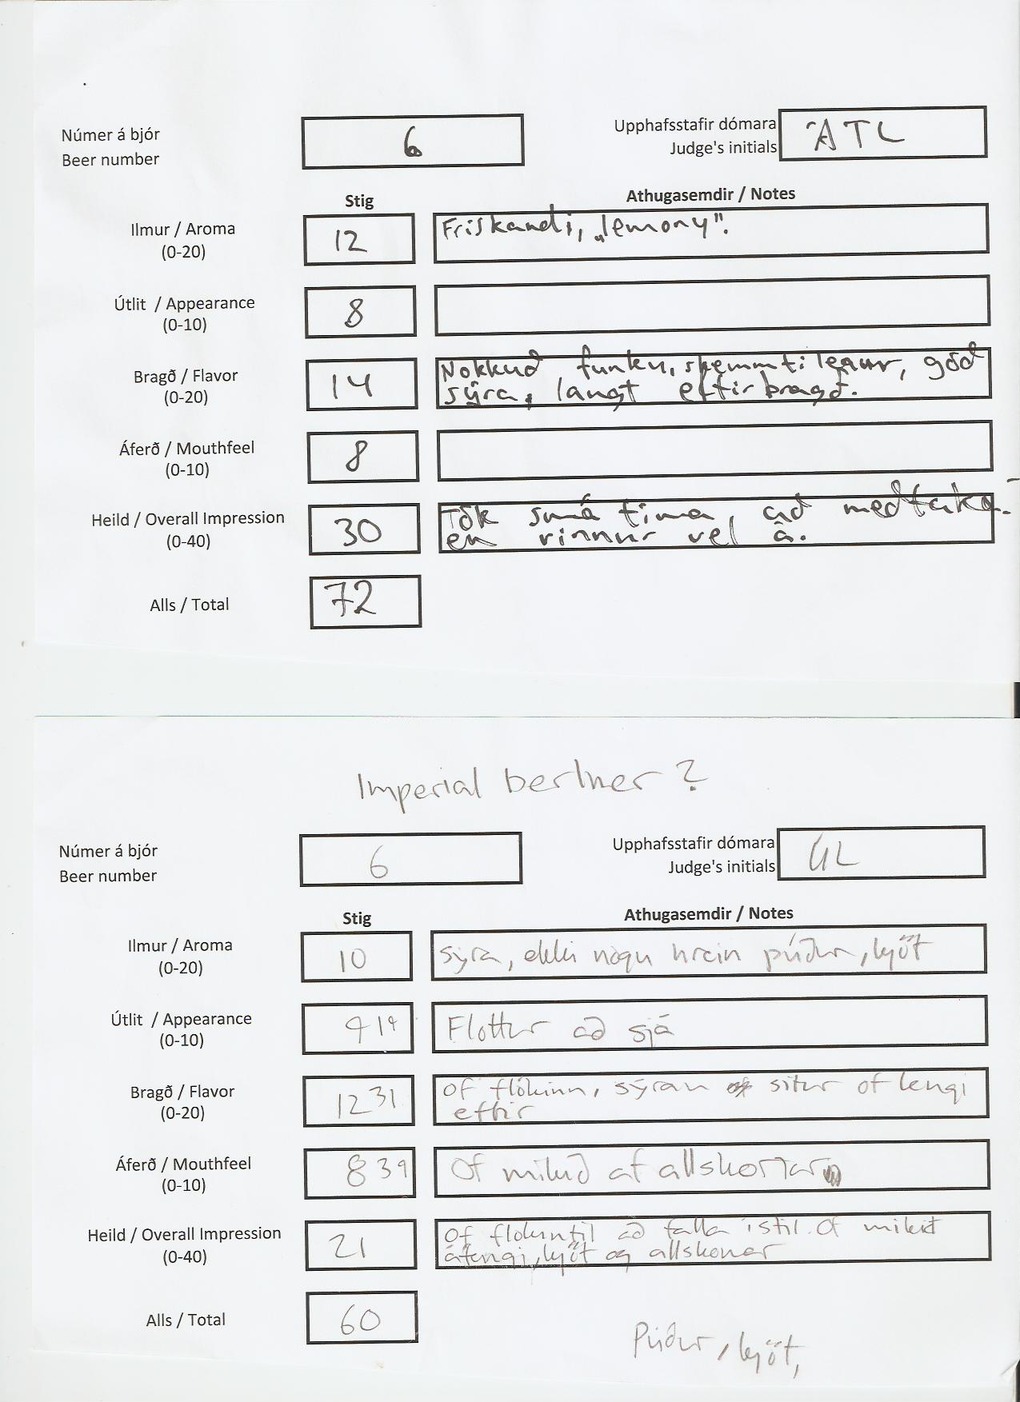 Númer á bjór
Beer number
6
Upphafsstafir dómara
Judge's initials
ATL
Stig
Athugasemdir / Notes
Ilmur / Aroma
(0-20)
12
Frískandi, „lemony".
Útlit / Appearance
(0-10)
8
Bragð / Flavor
(0-20)
14
Nokkuð funky, skemmtilegur, góð
sýra, langt eftirbragð.
Áferð / Mouthfeel
(0-10)
8
Heild / Overall Impression
(0-40)
30
Tók smá tíma að meðtaka
en vinnur vel á.
Alls / Total
72
Imperial berliner?
Númer á bjór
Beer number
6
Upphafsstafir dómara
Judge's initials
ÚL
Stig
Athugasemdir / Notes
Ilmur / Aroma
(0-20)
10
sýra, ekki nógu hrein púður, kjöt
Útlit / Appearance
(0-10)
9 19
Flottur að sjá
Bragð / Flavor
(0-20)
12 31
of flókinn, sýran situr of lengi
eftir
Áferð / Mouthfeel
(0-10)
8 39
Of mikið af allskonar
Heild / Overall Impression
(0-40)
21
Of flókinn til að falla í stíl. Of mikið
áfengi, kjöt og allskonar
Alls / Total
60
Púður, kjöt,